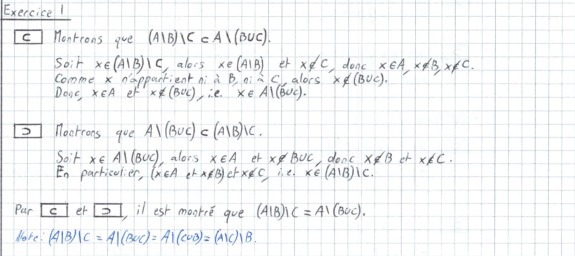 Exercice 1
⊂ Montrons que (A\B)\C ⊂ A\(B∪C).
Soit x∈(A\B)\C, alors x∈(A\B) et x∉C, donc x∈A, x∉B, x∉C.
Comme x n'appartient ni à B, ni à C, alors x∉(B∪C).
Donc, x∈A et x∉(B∪C), i.e. x∈A\(B∪C).
⊃ Montrons que A\(B∪C) ⊂ (A\B)\C.
Soit x∈A\(B∪C), alors x∈A et x∉B∪C, donc x∉B et x∉C.
En particulier, (x∈A et x∉B) et x∉C, i.e. x∈(A\B)\C.
Par ⊂ et ⊃, il est montré que (A\B)\C = A\(B∪C).
Note: (A\B)\C = A\(B∪C) = A\(C∪B) = (A\C)\B.